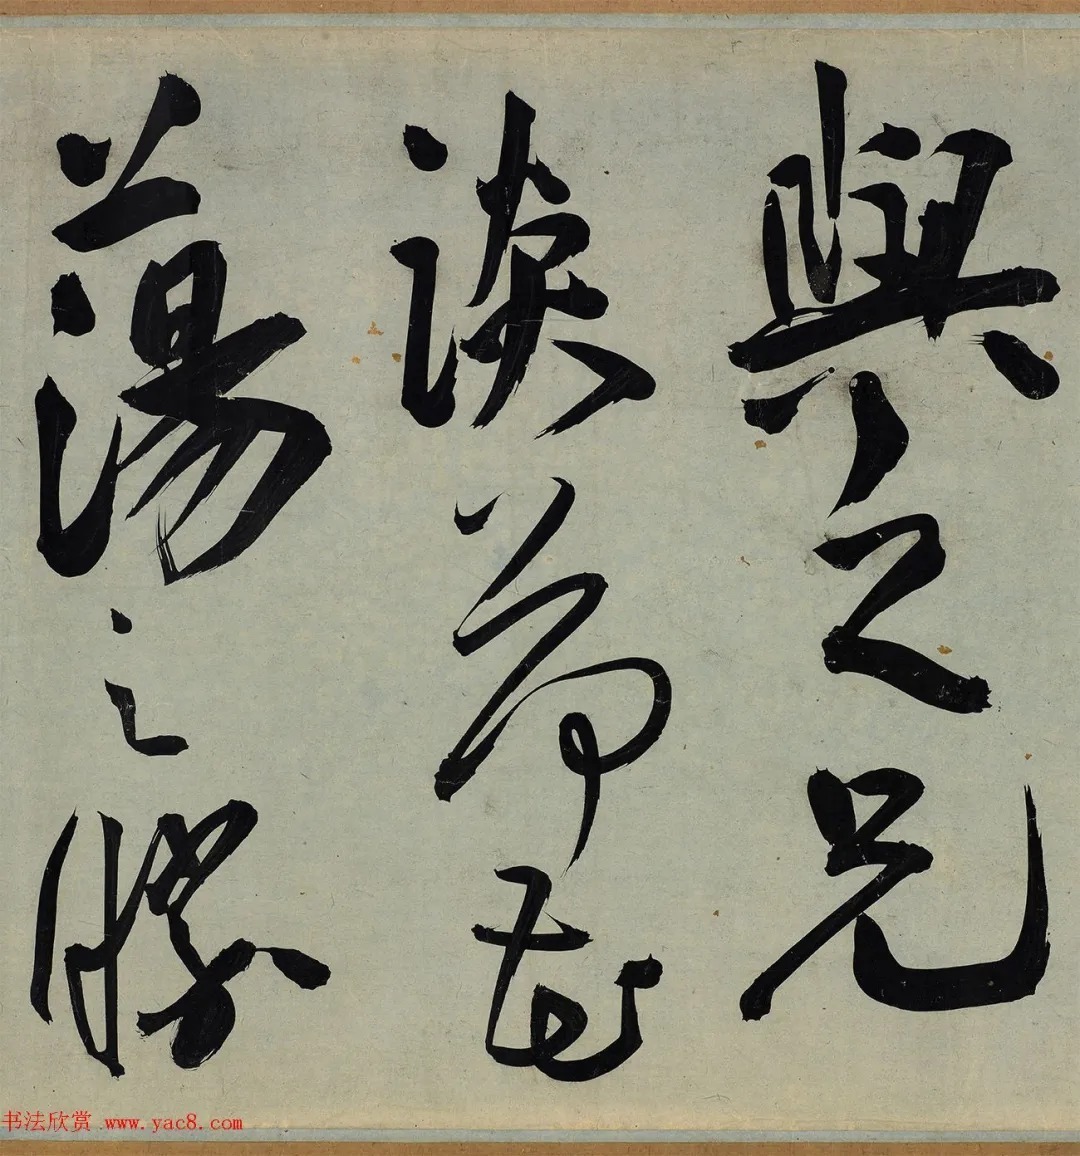 與之兄
談
蕩之勝
书法欣赏 www.yac8.com